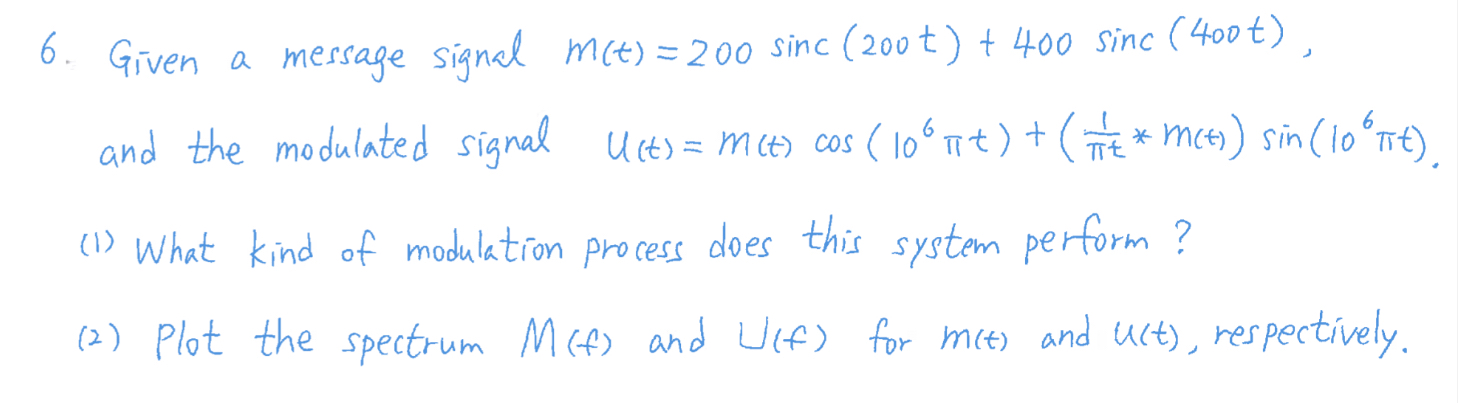 6. Given a message signal m(t) = 200 sinc (200t) + 400 sinc (400t),
and the modulated signal u(t) = m(t) cos (10⁶πt) + (1/πt * m(t)) sin(10⁶πt).
(1) What kind of modulation process does this system perform ?
(2) Plot the spectrum M(f) and U(f) for m(t) and u(t), respectively.